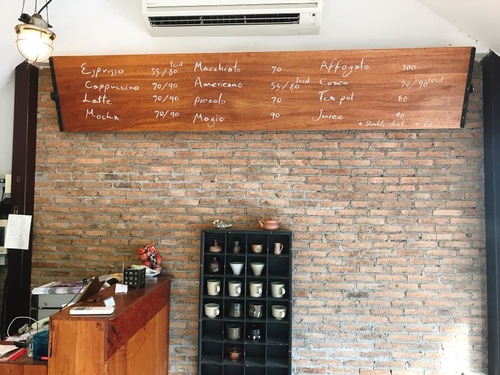 Espresso 55/80 Iced
Cappuccino 70/90
Latte 70/90
Mocha 70/90
Macchiato 70
Americano 55/80 Iced
Piccolo 70
Magic 90
Affogato 100
Cocoa 70/90 Iced
Tea pot 80
Juice 90
* Double shot